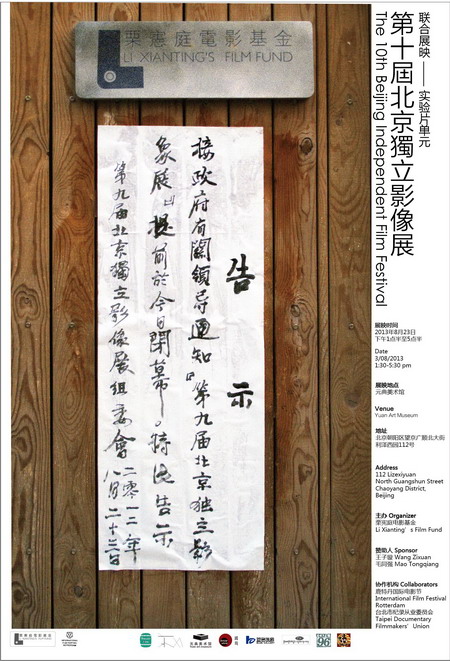 栗憲庭電影基金
LI XIANTING'S FILM FUND
告示
接政府有關领导通知『第九届北京独立影
象展』提前於今日閉幕。特此告示
第九届北京獨立影像展组委會 二零一二年
八月二十三日
联合展映 —— 实验片单元
第十屆北京獨立影像展
The 10th Beijing Independent Film Festival
展映时间
2013年8月23日
下午1点半至5点半
Date
3/08/2013
1:30-5:30 pm
展映地点
元典美术馆
Venue
Yuan Art Museum
地址
北京朝阳区望京广顺北大街
利泽西园112号
Address
112 Lizexiyuan
North Guangshun Street
Chaoyang District,
Beijing
主办 Organizer
栗宪庭电影基金
Li Xianting's Film Fund
赞助人 Sponsor
王子璇 Wang Zixuan
毛同强 Mao Tongqiang
协作机构 Collaborators
鹿特丹国际电影节
International Film Festival
Rotterdam
台北市纪录从业委员会
Taipei Documentary
Filmmakers' Union